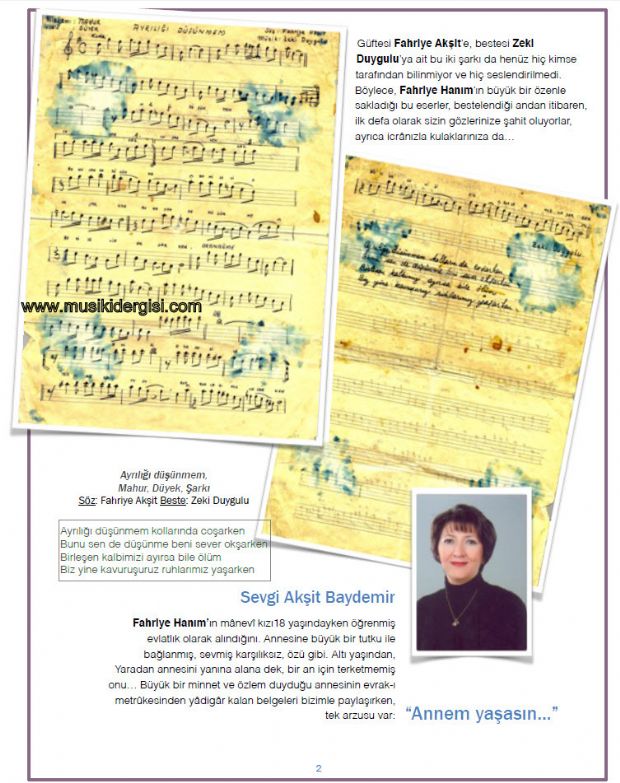 AYRILIĞI DÜŞÜNMEM
Söz: Fahriye Akşit
Musiki: Zeki Duygulu
MAHUR
DÜYEK
Güftesi Fahriye Akşit'e, bestesi Zeki
Duygulu'ya ait bu iki şarkı da henüz hiç kimse
tarafından bilinmiyor ve hiç seslendirilmedi.
Böylece, Fahriye Hanım'ın büyük bir özenle
sakladığı bu eserler, bestelendiği andan itibaren,
ilk defa olarak sizin gözlerinize şahit oluyorlar,
ayrıca icrânızla kulaklarınıza da…
Zeki Duygulu
www.musikidergisi.com
Ayrılığı düşünmem,
Mahur, Düyek, Şarkı
Söz: Fahriye Akşit Beste: Zeki Duygulu
Ayrılığı düşünmem kollarında coşarken
Bunu sen de düşünme beni sever okşarken
Birleşen kalbimizi ayırsa bile ölüm
Biz yine kavuruşuruz ruhlarımız yaşarken
Sevgi Akşit Baydemir
Fahriye Hanım'ın mânevî kızı18 yaşındayken öğrenmiş
evlatlık olarak alındığını. Annesine büyük bir tutku ile
bağlanmış, sevmiş karşılıksız, özü gibi. Altı yaşından,
Yaradan annesini yanına alana dek, bir an için terketmemiş
onu… Büyük bir minnet ve özlem duyduğu annesinin evrak-ı
metrûkesinden yâdigâr kalan belgeleri bizimle paylaşırken,
tek arzusu var:
"Annem yaşasın..."
2